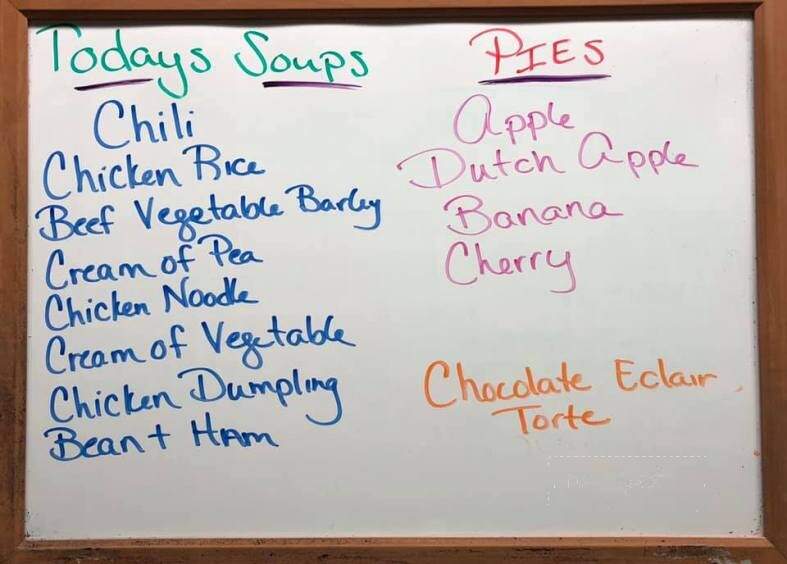 Todays Soups
Chili
Chicken Rice
Beef Vegetable Barley
Cream of Pea
Chicken Noodle
Cream of Vegetable
Chicken Dumpling
Bean + Ham
PIES
Apple
Dutch Apple
Banana
Cherry
Chocolate Eclair
Torte